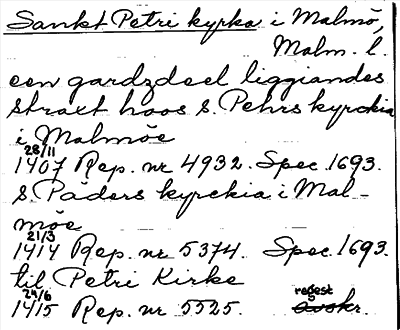 Sankt Petri kyrka i Malmö,
Malm. l.
een gardzdeel liggiandes
straxt hoos S. Pehrs kyrckia
i Malmöe
28/11
1407 Rep. nr 4932. Spec. 1693.
S. Päders kyrckia i Mal-
möe
21/3
1414 Rep. nr 5374. Spec. 1693.
til Petri Kirke
24/6 regest
1415 Rep. nr 5525. avskr.